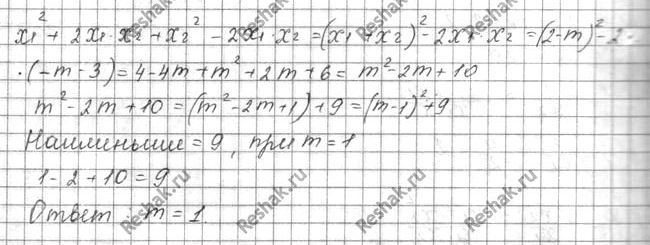 x₁² + 2x₁·x₂ + x₂² - 2x₁·x₂ = (x₁ + x₂)² - 2x₁·x₂ = (2-m)² - 2·
·(-m-3) = 4-4m+m²+2m+6 = m²-2m+10
m²-2m+10 = (m²-2m+1)+9 = (m-1)²+9
Наименьшее = 9, при m = 1
1-2+10 = 9
Ответ: m = 1.
Reshak.ru
Reshak.ru
Reshak.ru
Reshak.ru
Reshak.ru
Reshak.ru